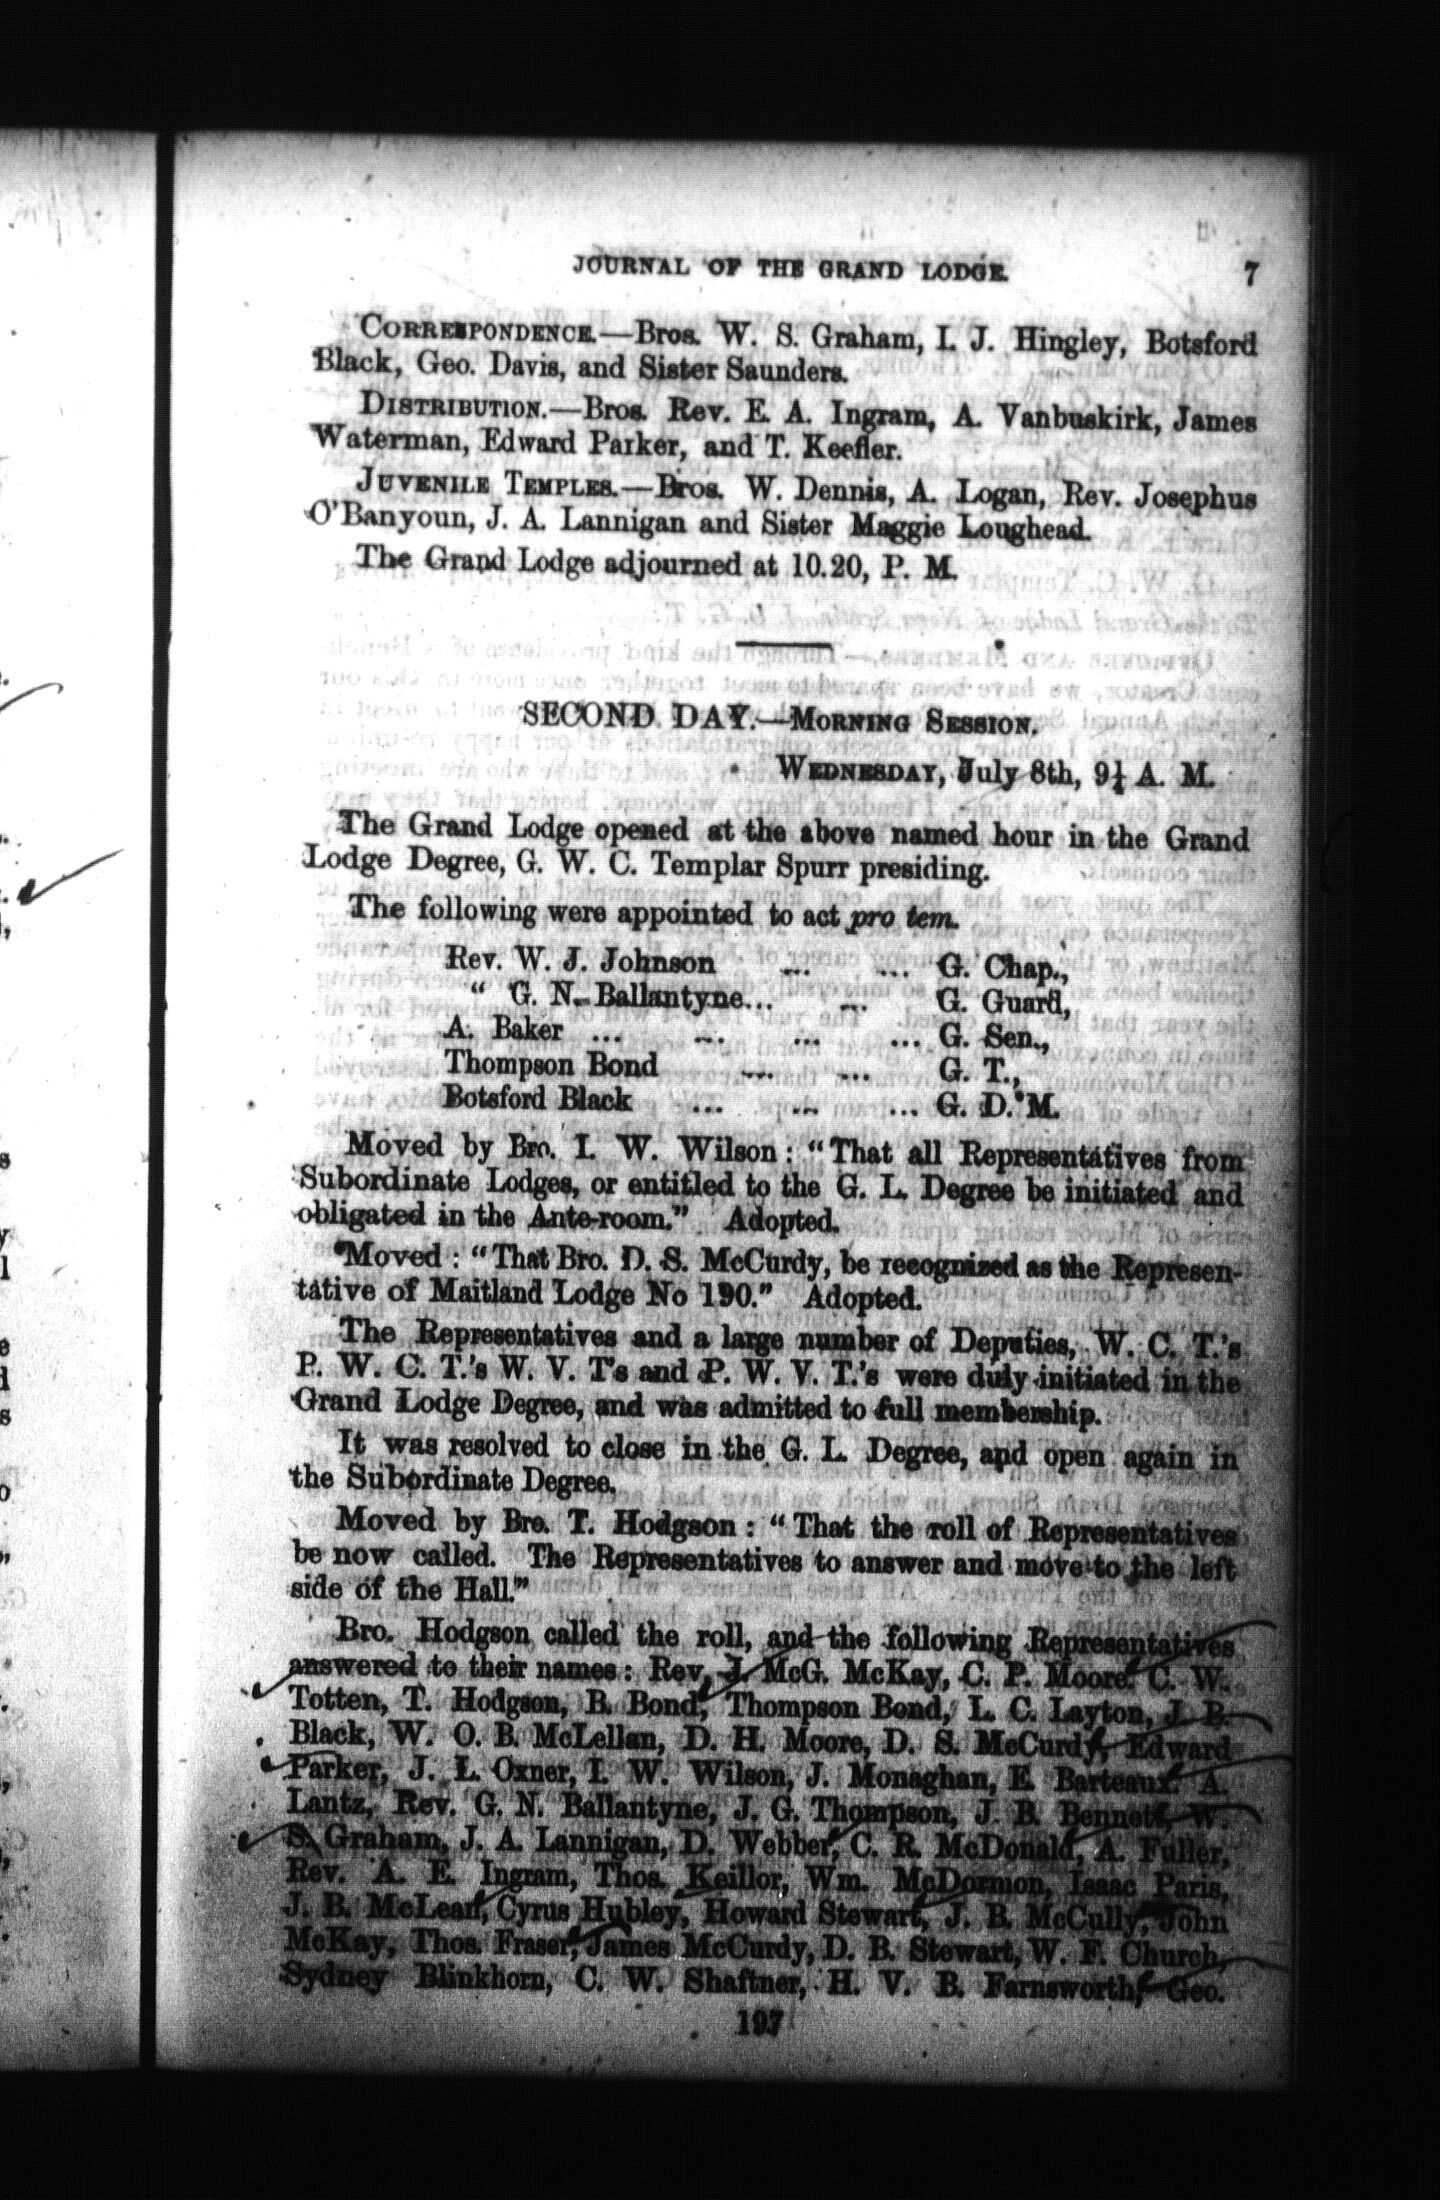 JOURNAL OF THE GRAND LODGE. 7
CORRESPONDENCE.—Bros. W. S. Graham, I. J. Hingley, Botsford
Black, Geo. Davis, and Sister Saunders.
DISTRIBUTION.—Bros. Rev. E. A. Ingram, A. Vanbuskirk, James
Waterman, Edward Parker, and T. Keefler.
JUVENILE TEMPLES.—Bros. W. Dennis, A. Logan, Rev. Josephus
O'Banyoun, J. A. Lannigan and Sister Maggie Loughead.
The Grand Lodge adjourned at 10.20, P. M.
SECOND DAY.—MORNING SESSION.
WEDNESDAY, July 8th, 9½ A. M.
The Grand Lodge opened at the above named hour in the Grand
Lodge Degree, G. W. C. Templar Spurr presiding.
The following were appointed to act pro tem.
Rev. W. J. Johnson ... ... G. Chap.,
" G. N. Ballantyne... ... G. Guard,
A. Baker ... ... ... ... G. Sen.,
Thompson Bond ... ... G. T.,
Botsford Black ... ... ... G. D. M.
Moved by Bro. I. W. Wilson: "That all Representatives from
Subordinate Lodges, or entitled to the G. L. Degree be initiated and
obligated in the Ante-room." Adopted.
Moved: "That Bro. D. S. McCurdy, be recognized as the Represen-
tative of Maitland Lodge No 190." Adopted.
The Representatives and a large number of Deputies, W. C. T.'s
P. W. C. T.'s W. V. T's and P. W. V. T.'s were duly initiated in the
Grand Lodge Degree, and was admitted to full membership.
It was resolved to close in the G. L. Degree, and open again in
the Subordinate Degree.
Moved by Bro. T. Hodgson: "That the roll of Representatives
be now called. The Representatives to answer and move to the left
side of the Hall."
Bro. Hodgson called the roll, and the following Representatives
answered to their names: Rev. J. McG. McKay, C. P. Moore. C. W.
Totten, T. Hodgson, B. Bond, Thompson Bond, L. C. Layton, J. B.
Black, W. O. B. McLellan, D. H. Moore, D. S. McCurdy, Edward
Parker, J. L. Oxner, I. W. Wilson, J. Monaghan, E. Barteaux. A.
Lantz, Rev. G. N. Ballantyne, J. G. Thompson, J. B. Bennett, W.
S. Graham, J. A. Lannigan, D. Webber, C. R. McDonald, A. Fuller,
Rev. A. E. Ingram, Thos. Keillor, Wm. McDormon, Isaac Paris,
J. B. McLean, Cyrus Hubley, Howard Stewart, J. B. McCully, John
McKay, Thos. Fraser, James McCurdy, D. B. Stewart, W. F. Church,
Sydney Blinkhorn, C. W. Shaftner, H. V. B. Farnsworth, Geo.
197